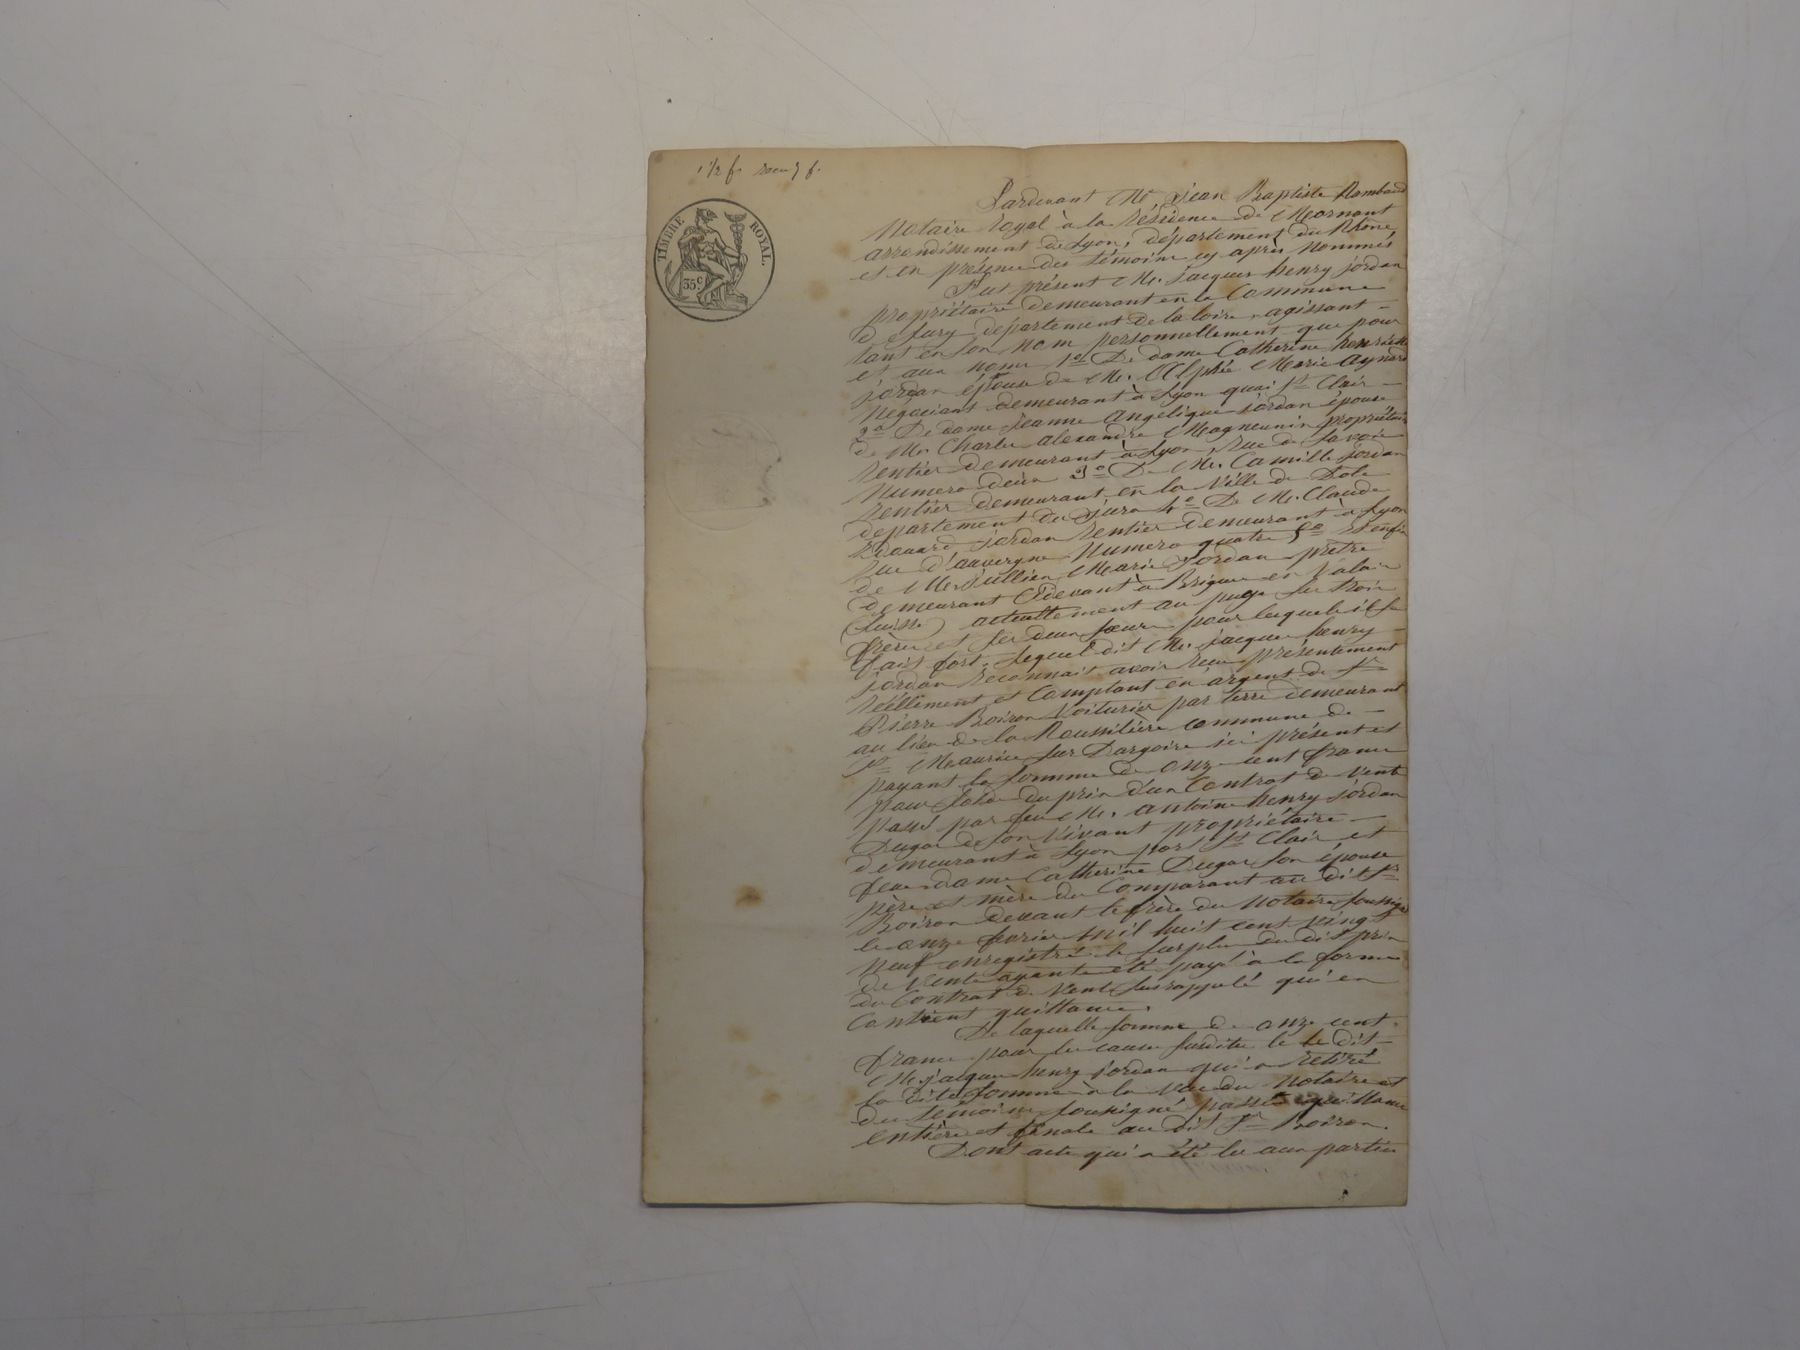 1 1/2 f.
TIMBRE ROYAL.
35 c
Pardevant Me. Jean Baptiste Rambaud
Notaire royal à la résidence de Mornant
arrondissement de Lyon, département du Rhône,
et en présence des témoins cy après nommés
Fut présent Mr. jacques henry jordan
propriétaire demeurant en la Commune
de Sury département de la loire, agissant -
tant en son nom personnellement que pour
et aux noms 1o. De dame Catherine henriette
jordan épouse de Mr. Alphée Marie aynard
négociant demeurant à Lyon quai St Clair -
2o De dame jeanne angélique jordan épouse
de Mr. Charles alexandre Magneunin propriétaire
rentier demeurant à Lyon, rue de Savoie
Numero deux 3o. De Mr. Camille jordan
rentier demeurant en la Ville de Dole
département du jura 4o. De Mr. Claude
Edouard jordan rentier demeurant à Lyon
rue d'auvergne Numero quatre 5o Et enfin
de Mr. jullien Marie jordan prêtre
demeurant Cidevant à Brigue en Valais
(Suisse) actuellement au puys ses trois
frères et ses deux soeurs pour lesquels il se
fait fort. Lequel dit Mr. jacques henry -
jordan reconnait avoir reçu présentement
réellement et Comptant en argent de Sr
Pierre Boiron voiturier par terre demeurant
au lieu de la Roussilière commune de -
St Maurice sur Dargoire ici présent et
payant la somme de onze cent francs
pour solde du prix d'un Contrat de Vente
passé par feu Mr. antoine henry jordan
Dugas de son vivant propriétaire -
demeurant à Lyon port St Clair et
feue dame Catherine Dugas son épouse
père et mère du Comparant au dit Sr
Boiron devant le frère du Notaire soussigné
le onze fevrier mil huit cent vingt
neuf enregistré le surplus du dit prix
de Vente ayant été payé à la forme
du Contrat de Vente susrappelé qui en
Contient quittance.
De laquelle somme de onze cent
francs pour les causes susdites le le dit -
Mr. jacques henry jordan qui a retiré
la dite somme à la vue du Notaire et
des témoins soussignés passe quittance
entière et finale au dit Sr Boiron.
Dont acte qui a été lu aux parties